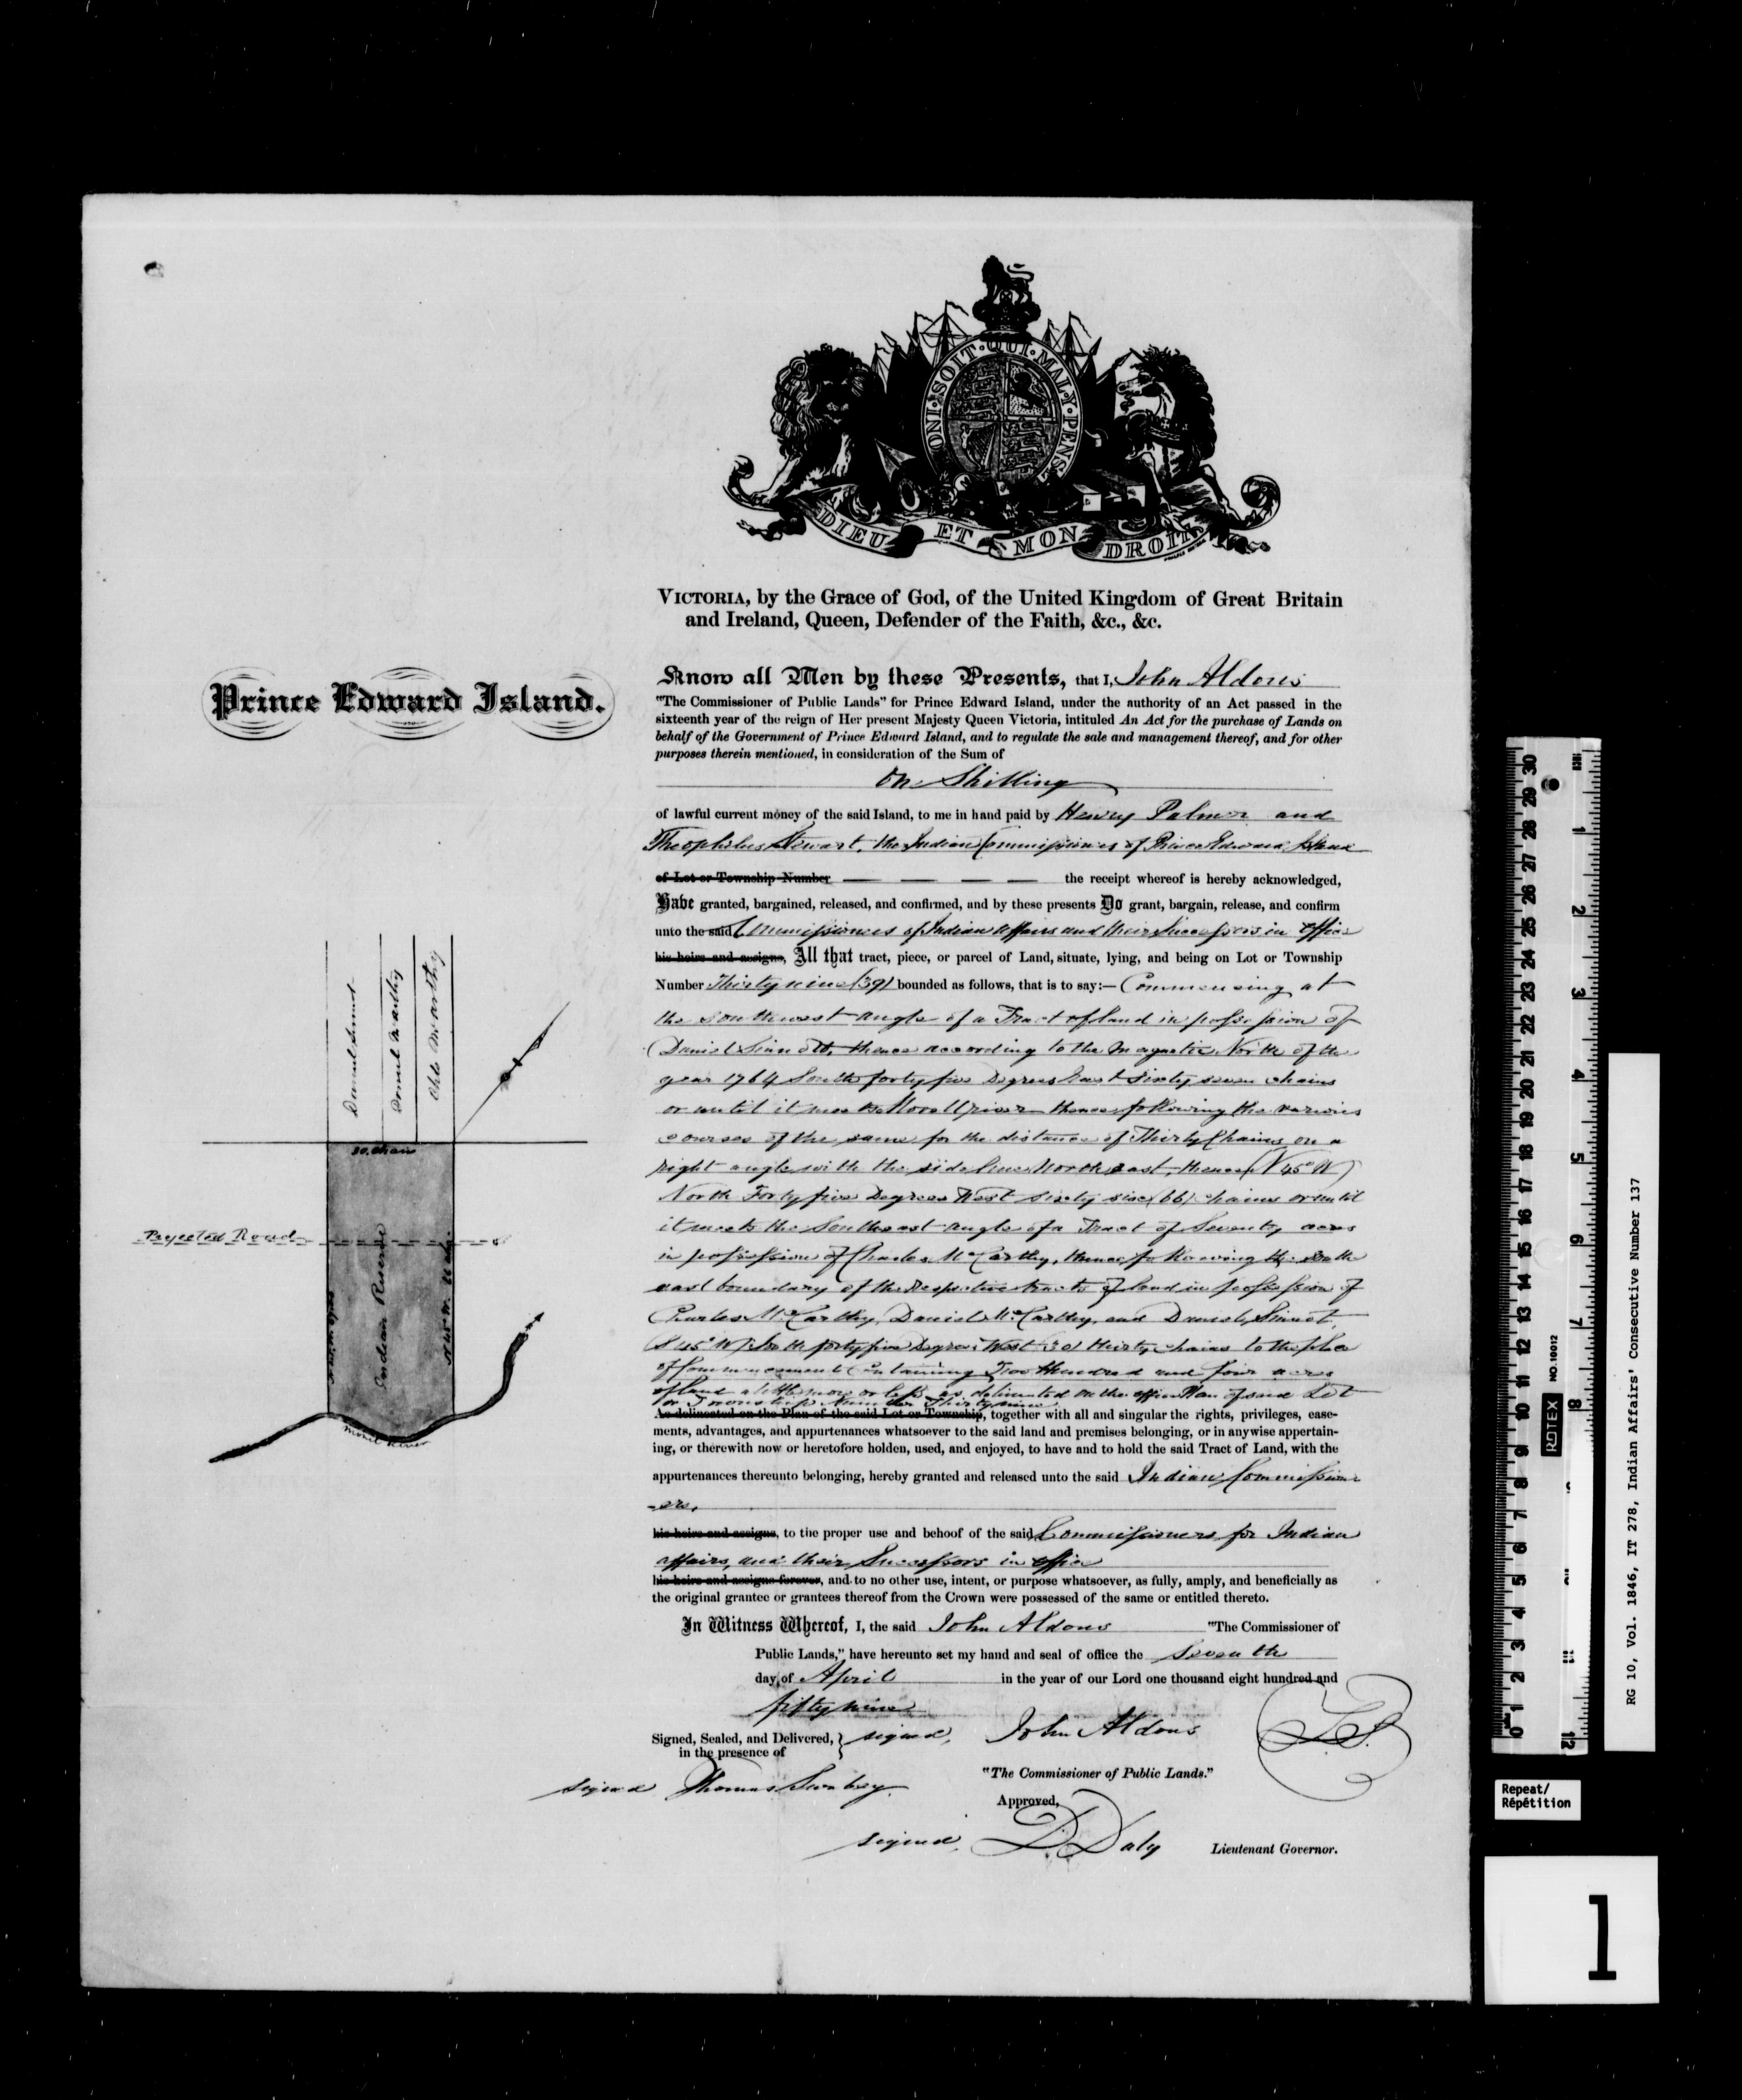 HONI·SOIT·QUI·MAL·Y·PENSE
DIEU ET MON DROIT
VICTORIA, by the Grace of God, of the United Kingdom of Great Britain
and Ireland, Queen, Defender of the Faith, &c., &c.
Prince Edward Island.
Know all Men by these Presents, that I, John Aldous
"The Commissioner of Public Lands" for Prince Edward Island, under the authority of an Act passed in the
sixteenth year of the reign of Her present Majesty Queen Victoria, intituled An Act for the purchase of Lands on
behalf of the Government of Prince Edward Island, and to regulate the sale and management thereof, and for other
purposes therein mentioned, in consideration of the Sum of
One Shilling
of lawful current money of the said Island, to me in hand paid by Henry Palmer and
Theophilus Stewart, the Indian Commissioners of Prince Edward Island
of Lot or Township Number the receipt whereof is hereby acknowledged,
Have granted, bargained, released, and confirmed, and by these presents Do grant, bargain, release, and confirm
unto the said Commissioners of Indian Affairs and their Successors in office
his heirs and assigns, All that tract, piece, or parcel of Land, situate, lying, and being on Lot or Township
Number Thirty nine (39) bounded as follows, that is to say:— Commencing at
the South west angle of a Tract of land in possession of
Daniel Sinnott, thence according to the Magnetic North of the
year 1764 South forty five Degrees East Sixty seven chains
or until it meets Morell river thence following the various
courses of the same for the distance of Thirty Chains on a
right angle with the side lines North east, thence (N 45° W)
North Forty five Degrees West sixty six (66) chains or until
it meets the South east angle of a Tract of Seventy acres
in possession of Charles McCarthy, thence following the South
east boundary of the respective tracts of land in possession of
Charles McCarthy, Daniel McCarthy, and Daniel Sinnot,
(S 45° W) South forty five Degrees West (30) thirty chains to the place
of Commencement Containing Two Hundred and four acres
of land a little more or less as delineated on the office Plan of said Lot
or Township Number Thirty nine
As delineated on the Plan of the said Lot or Township, together with all and singular the rights, privileges, ease-
ments, advantages, and appurtenances whatsoever to the said land and premises belonging, or in anywise appertain-
ing, or therewith now or heretofore holden, used, and enjoyed, to have and to hold the said Tract of Land, with the
appurtenances thereunto belonging, hereby granted and released unto the said Indian Commission
-ers,
his heirs and assigns, to the proper use and behoof of the said Commissioners for Indian
affairs, and their Successors in office
his heirs and assigns forever, and to no other use, intent, or purpose whatsoever, as fully, amply, and beneficially as
the original grantee or grantees thereof from the Crown were possessed of the same or entitled thereto.
In Witness Whereof, I, the said John Aldous "The Commissioner of
Public Lands," have hereunto set my hand and seal of office the Seventh
day of April in the year of our Lord one thousand eight hundred and
fifty nine
Signed, Sealed, and Delivered, } signed, John Aldous L.S.
in the presence of
"The Commissioner of Public Lands."
signed Thomas
Approved,
signed, D. Daly Lieutenant Governor.
Daniel Sinnot
Daniel McCarthy
Chls McCarthy
30 chains
Projected Road
Indian Reserve
Morell River
RG 10, Vol. 1846, IT 278, Indian Affairs' Consecutive Number 137
ROTEX NO. 10012
Repeat/
Répétition
1